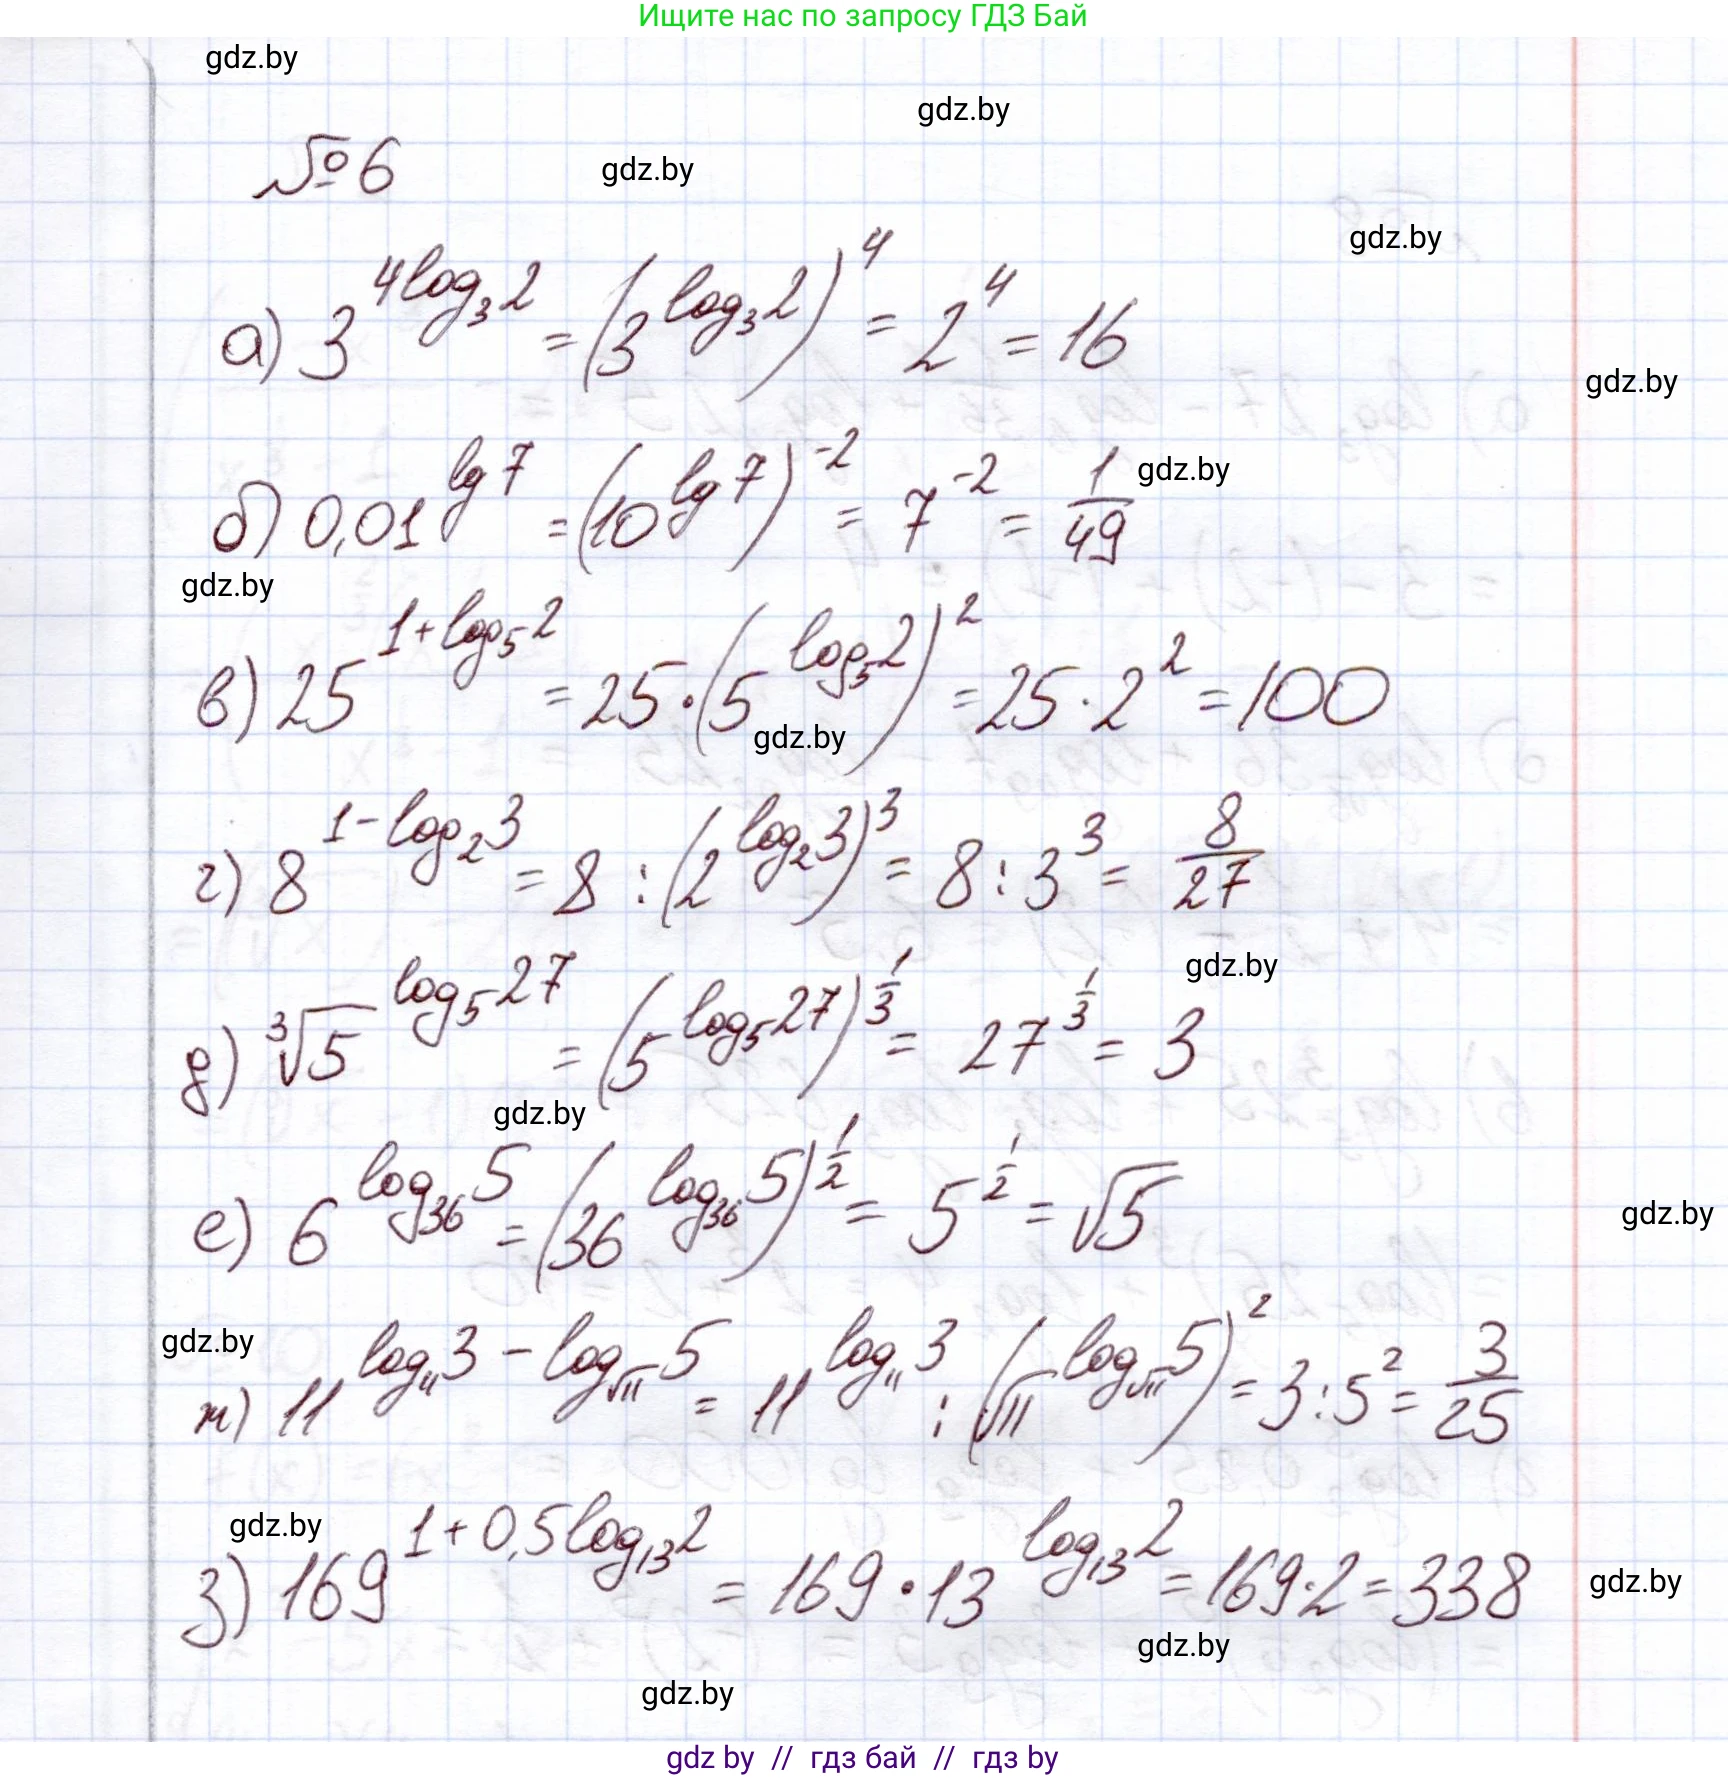 Ищите нас по запросу ГДЗ Бай
gdz.by
gdz.by
№6
gdz.by
gdz.by
а) 3^{4log_3 2} = (3^{log_3 2})^4 = 2^4 = 16
gdz.by
б) 0,01^{lg 7} = (10^{lg 7})^{-2} = 7^{-2} = 1/49
gdz.by
gdz.by
в) 25^{1+log_5 2} = 25 · (5^{log_5 2})^2 = 25 · 2^2 = 100
gdz.by
г) 8^{1-log_2 3} = 8 : (2^{log_2 3})^3 = 8 : 3^3 = 8/27
gdz.by
д) ∛5^{log_5 27} = (5^{log_5 27})^{1/3} = 27^{1/3} = 3
gdz.by
е) 6^{log_36 5} = (36^{log_36 5})^{1/2} = 5^{1/2} = √5
gdz.by
gdz.by
ж) 11^{log_11 3 - log_√11 5} = 11^{log_11 3} : (√11^{log_√11 5})^2 = 3 : 5^2 = 3/25
gdz.by
з) 169^{1+0,5log_13 2} = 169 · 13^{log_13 2} = 169·2 = 338
gdz.by
gdz.by
gdz.by
gdz by // гдз бай // гдз by